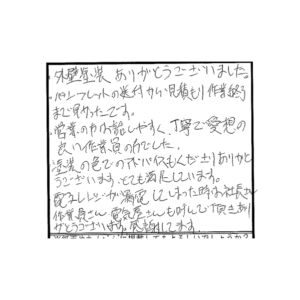 外壁塗装 ありがとうございました。
パンフレットの送付から見積もり作業終了
まで早かったです。
営業の方も話しやすく、丁寧で愛想の
良い作業員の方でした。
塗装の色でのアドバイスもくださりありがと
うございます。とても満足しています。
電子レンジが漏電してしまった時も社長さん
作業員さん、電気屋さんも呼んで頂きあり
がとうございます。感謝してます。